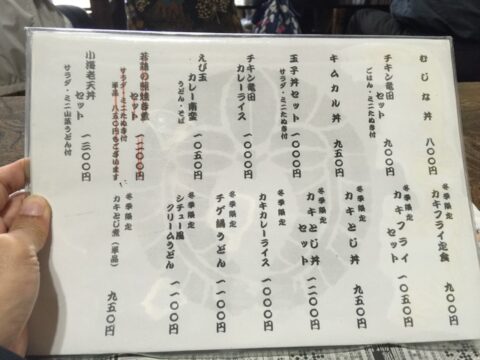 むじな丼 八〇〇円
チキン竜田
セット 九〇〇円
ごはん・ミニたぬき付
キムカル丼 九五〇円
玉子丼セット 一〇〇〇円
サラダ・ミニたぬき付
チキン竜田
カレーライス 一〇〇〇円
えび玉
カレー南蛮 一〇五〇円
うどん・そば
若鶏の
セット 一二〇〇円
サラダ・ミニたぬき付
単品 八五〇円もございます
小海老天丼
セット 一三〇〇円
サラダ・ミニ山菜うどん付
冬季限定
カキフライ定食 九〇〇円
冬季限定
カキフライ
セット 一〇五〇円
冬季限定
カキとじ丼 九五〇円
冬季限定
カキとじ丼
セット 一二〇〇円
冬季限定
カキカレーライス 一一〇〇円
冬季限定
チゲ鍋うどん 一一〇〇円
冬季限定
シチュー風
クリームうどん 一一〇〇円
冬季限定
カキとじ煮(単品) 九五〇円